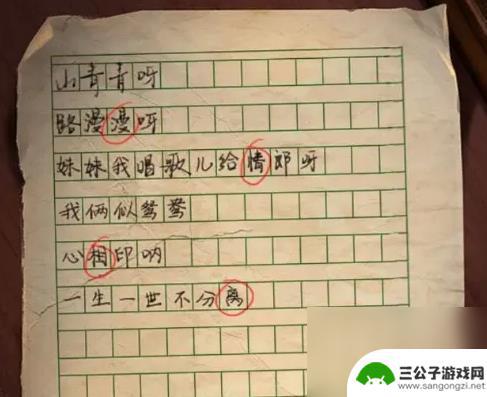 山青青呀
路漫漫呀
妹妹我唱歌儿给情郎呀
我俩似鸳鸯
心相印呐
一生一世不分离
三公子游戏网
www.sangongzi.net